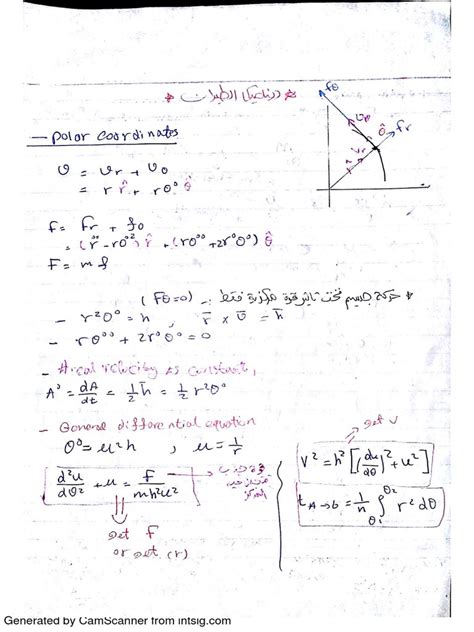 * ديناميكا الطيران *
fθ
vθ
θ̂
fr
r
- polar coordinates
v = vr + vθ
= r° r̂ + rθ° θ̂
f = fr + fθ
= (r°° - rθ°²) r̂ + (rθ°° + 2r°θ°) θ̂
F = m f
* حركة جسيم تحت تأثير قوة مركزية فقط :- (Fθ=0)
- r²θ° = h , r̅ × v̅ = h̅
- rθ°° + 2r°θ° = 0
- Areal velocity is constant,
A° = dA/dt = 1/2 h̅ = 1/2 r²θ°
- General differential equation
θ° = u²h , u = 1/r
d²u/dθ² + u = f/mh²u²
get f
or get (r)
get v
v² = h² [(du/dθ)² + u²]
t A→b = 1/h ∫θ1 θ2 r² dθ
Generated by CamScanner from intsig.com